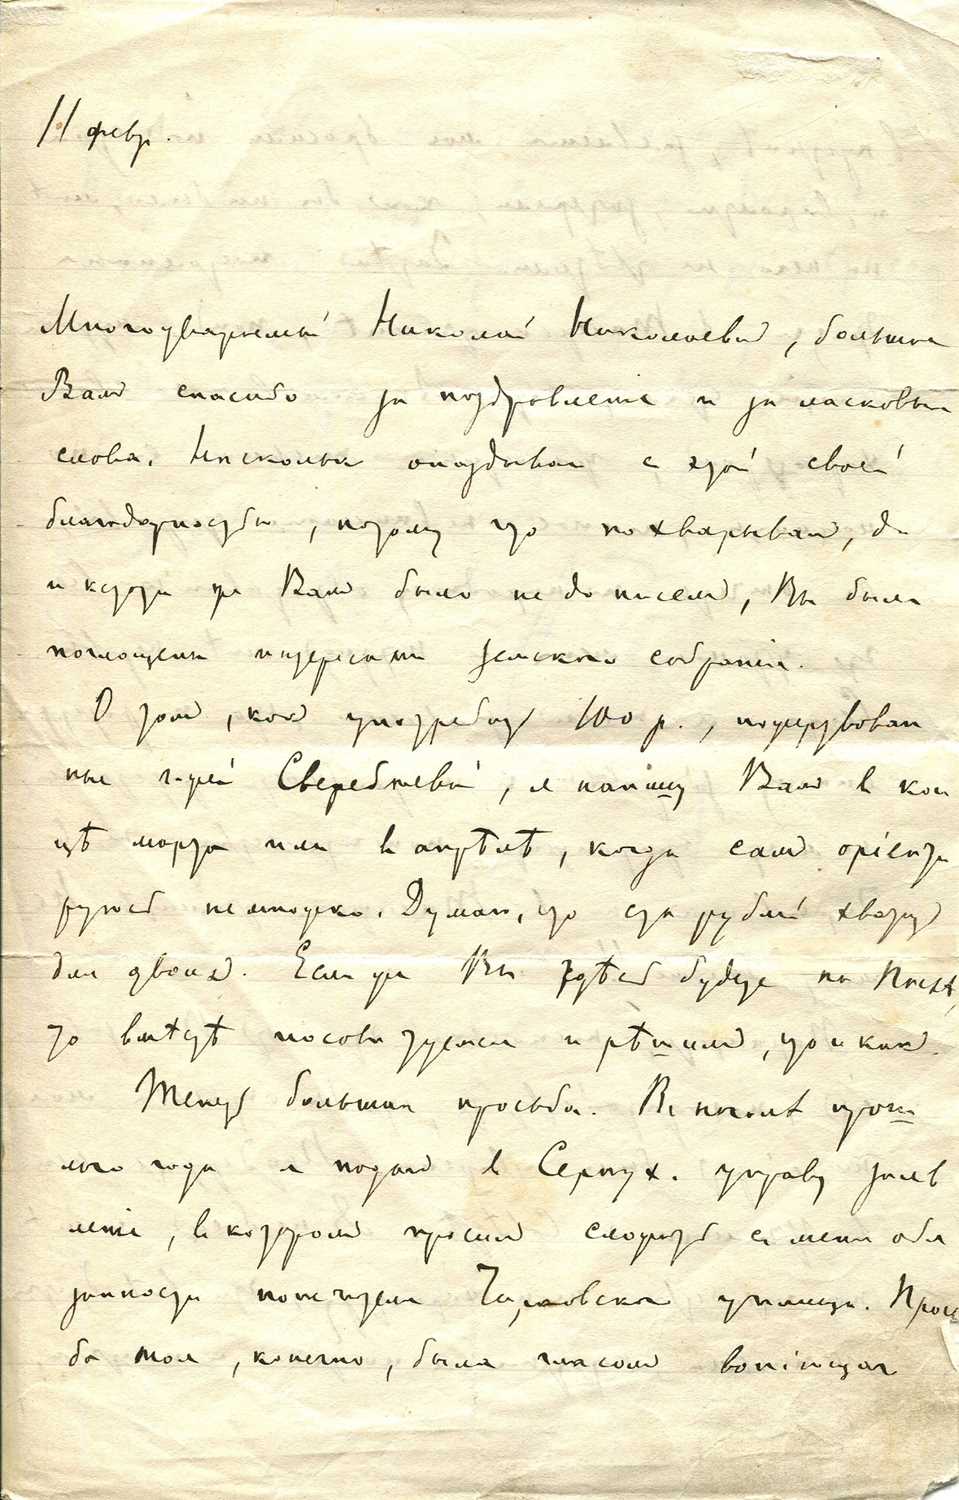 11 февр.
Многоуважаемый Николай Николаевич, большое
Вам спасибо за поздравленiе и за ласковыя
слова. Нисколько опаздываю с этой своей
благодарностью, потому что похварывал, да
и кстати же Вам было не до писем, Вы были
поглощены интересами земского собранiя.
О том, как употребить 100 р., пожертвован
ные г-жей Сверебеевой, я напишу Вам в кон
цѣ марта или в апрѣлѣ, когда сам орiенти
руюсь немножко. Думаю, что ста рублей хватит
для двоих. Если же Вы здѣсь будете на Пасхѣ,
то вмѣстѣ посовѣтуемся и рѣшим, что и как.
Теперь большая просьба. В началѣ прош
лого года я подал в Серпух. управу заяв
ленiе, в котором просил сложить с меня обя
занности попечителя Чирковского училища. Прось
ба моя, конечно, была гласом вопiющаго